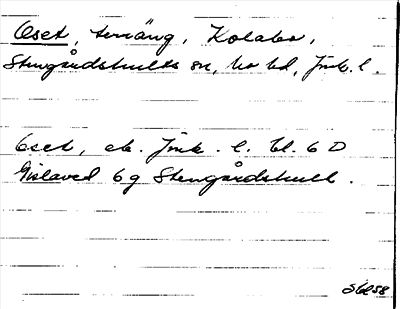 Oset, terräng, Kolabo,
Stengårdshults sn, Mo hd, Jönk. l.
Oset, ek. Jönk. l. bl. 6 D
Gislaved 6 g Stengårdshult.